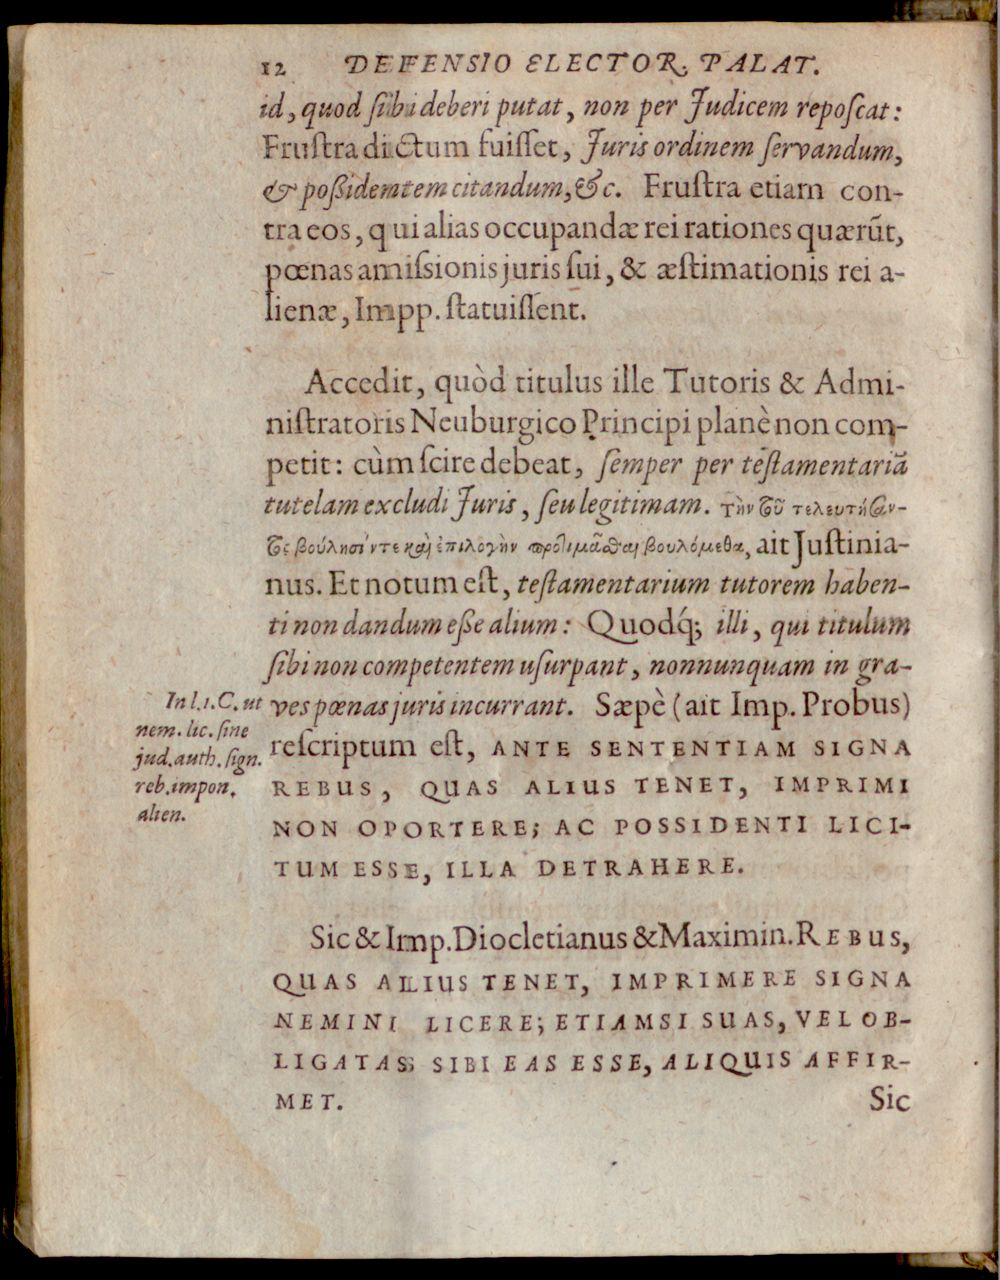 12 DEFENSIO ELECTOR. PALAT.
id, quod ſibi deberi putat, non per Judicem repoſcat:
Fruſtra dictum fuiſſet, Juris ordinem ſervandum,
& poßidemtem citandum, &c. Fruſtra etiam con-
tra eos, qui alias occupandæ rei rationes quærũt,
pœnas amiſsionis juris ſui, & æſtimationis rei a-
lienæ, Impp. ſtatuiſſent.
Accedit, quòd titulus ille Tutoris & Admi-
niſtratoris Neuburgico Principi planè non com-
petit: cùm ſcire debeat, ſemper per teſtamentariã
tutelam excludi Juris, ſeu legitimam. Τὴν τοῦ τελευτήσαν-
τος βούλησίν τε καὶ ἐπιλογὴν προτιμᾶσθαι βουλόμεθα, ait Juſtinia-
nus. Et notum eſt, teſtamentarium tutorem haben-
ti non dandum eße alium: Quodq́; illi, qui titulum
ſibi non competentem uſurpant, nonnunquam in gra-
ves pœnas juris incurrant. Sæpè (ait Imp. Probus)
reſcriptum eſt, ANTE SENTENTIAM SIGNA
REBUS, QUAS ALIUS TENET, IMPRIMI
NON OPORTERE; AC POSSIDENTI LICI-
TUM ESSE, ILLA DETRAHERE.
In l.1. C. ut
nem. lic. ſine
jud. auth. ſign.
reb. impon.
alien.
Sic & Imp. Diocletianus & Maximin. REBUS,
QUAS ALIUS TENET, IMPRIMERE SIGNA
NEMINI LICERE; ETIAMSI SUAS, VEL OB-
LIGATAS SIBI EAS ESSE, ALIQUIS AFFIR-
MET.
Sic